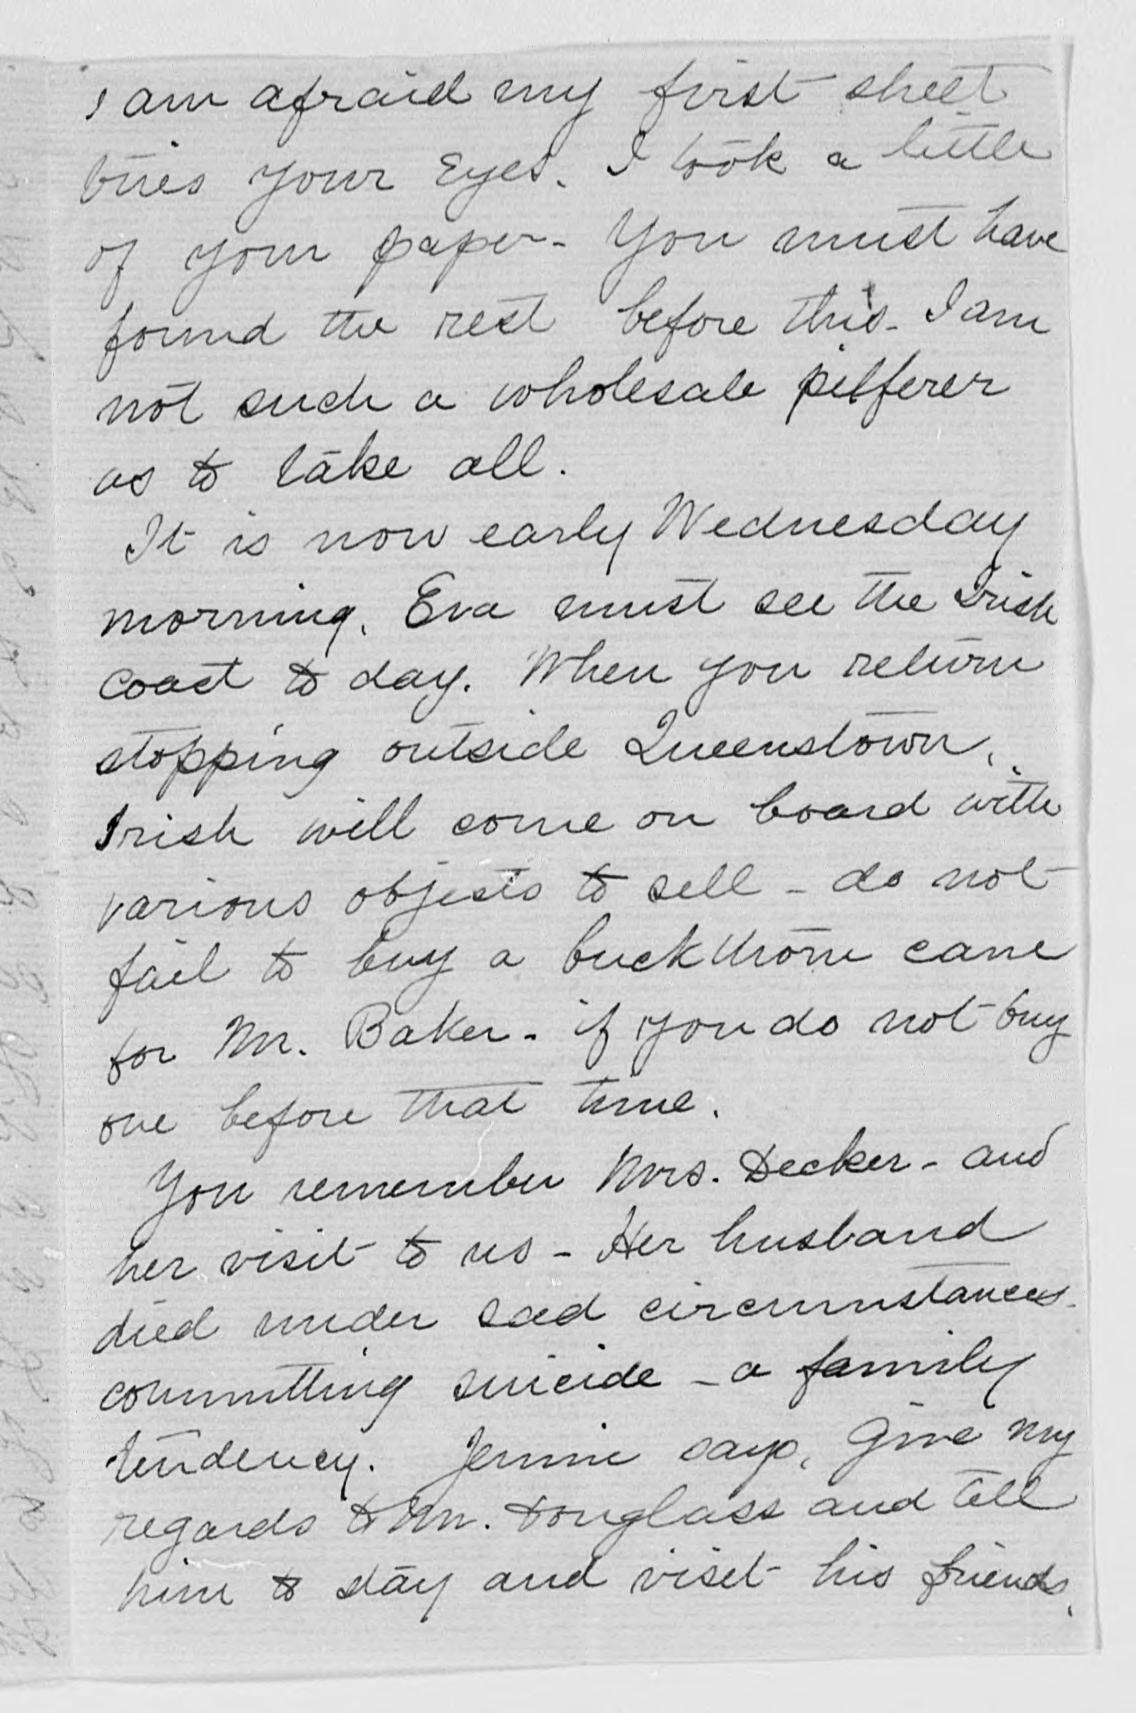 I am afraid my first sheet
tires your Eyes. I took a little
of your paper - You must have
found the rest before this - I am
not such a wholesale pilferer
as to take all.
It is now early Wednesday
morning. Eva must see the Irish
coast to day. When you return
stopping outside Queenstown,
Irish will come on board with
various objects to sell - do not
fail to buy a buckthorn cane
for Mr. Baker - if you do not buy
one before that time.
You remember Mrs. Decker - and
her visit to us - Her husband
died under sad circumstances -
committing suicide - a family
tendency. Jennie says, Give my
regards to Mr. Douglass and tell
him to stay and visit his friends.